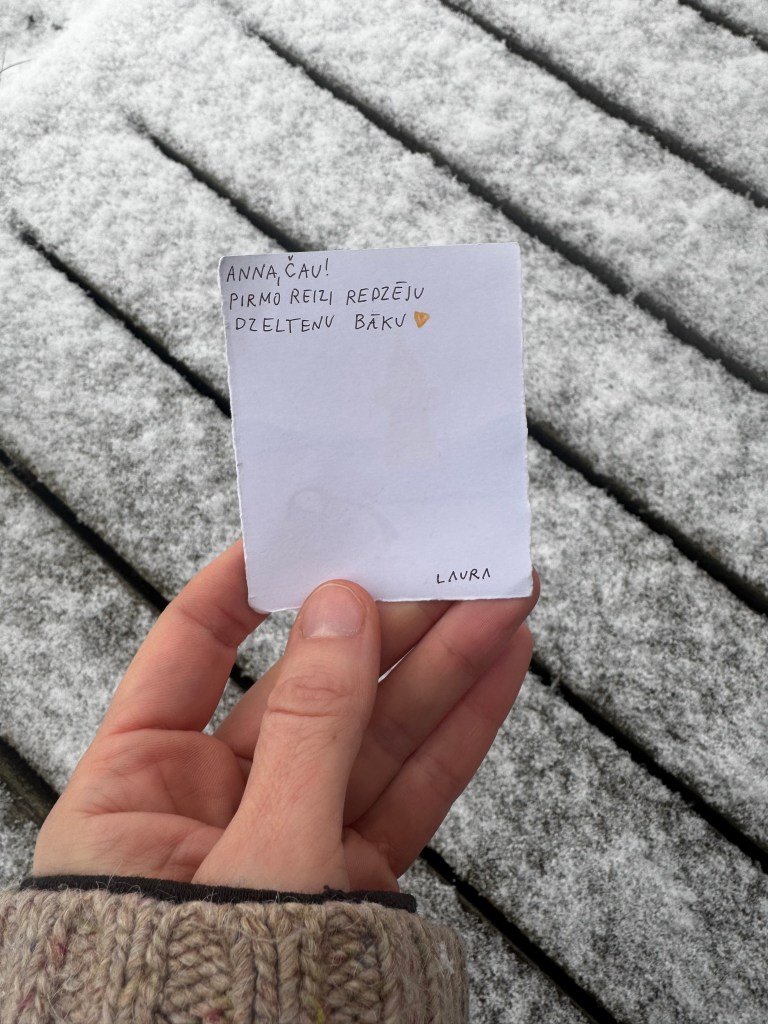 ANNA, ČAU!
PIRMO REIZI REDZĒJU
DZELTENU BĀKU
LAURA